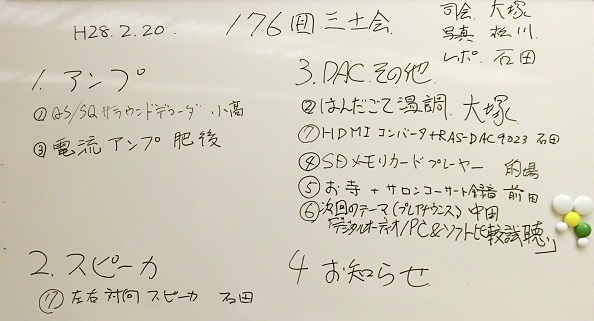 H28.2.20.
176回 三土会
司会 大塚
写真 松川
レポ. 石田
1. アンプ
① QS/SQ サラウンドデコーダ 小高
③ 電流アンプ 肥後
2. スピーカ
⑰ 左右対向 スピーカ 石田
3. DAC. その他.
② はんだごて温調. 大塚
⑦ HDMI コンバータ+RAS-DAC9023 石田
④ SDメモリカードプレーヤー 的場
⑤ お寺 + サロンコンサート録音 前田
⑥ 次回のテーマ(プレアナウンス) 中田
「デジタルオーディオ/PC&ソフト比較試聴」
4 お知らせ